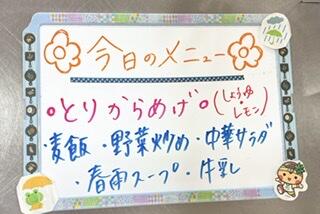 今日のメニュー
・とりからめげ。(しょうゆ・レモン)
・麦飯・野菜炒め・中華サラダ
・春雨スープ・牛乳